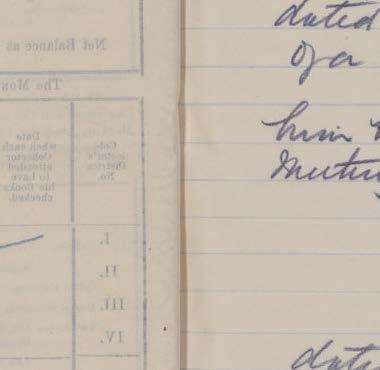 Net Balance as
The Mon
Date when each Collector attended to have his Books checked.
Col- lector's District No.
I.
II.
III.
IV.
dated
of a
him
Meetin
dat